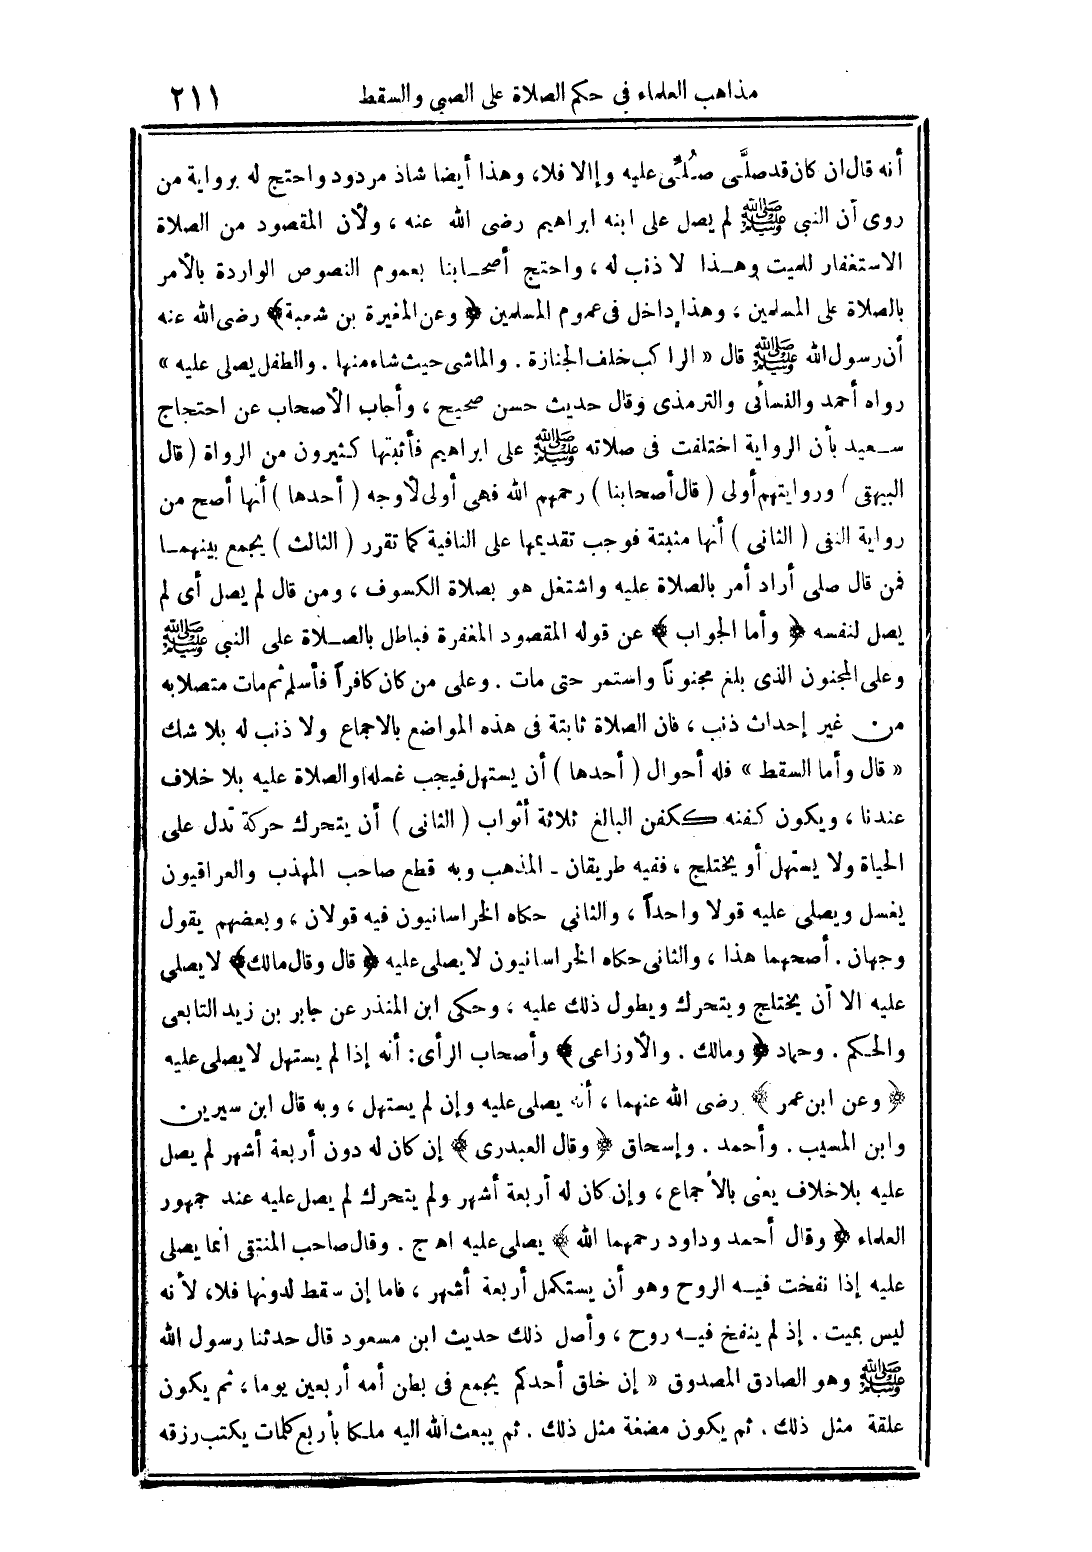 مذاهب العلماء في حكم الصلاة على الصبي والسقط ٢١١
أنه قال ان كان قد صلَّى صُلِّى عليه وإلا فلا، وهذا أيضا شاذ مردود واحتج له برواية من
روى أن النبى ﷺ لم يصل على ابنه ابراهيم رضى الله عنه ، ولأن المقصود من الصلاة
الاستغفار للميت وهـذا لا ذنب له ، واحتج أصحـابنا بعموم النصوص الواردة بالأمر
بالصلاة على المسلمين ، وهذا داخل فى عموم المسلمين ﴿ وعن المغيرة بن شعبة﴾ رضى الله عنه
أن رسول الله ﷺ قال « الراكب خلف الجنازة . والماشى حيث شاء منها . والطفل يصلى عليه »
رواه أحمد والنسائى والترمذى وقال حديث حسن صحيح ، وأجاب الأصحاب عن احتجاج
سـعيد بأن الرواية اختلفت فى صلاته ﷺ على ابراهيم فأثبتها كثيرون من الرواة ( قال
البيهقى ) وروايتهم أولى ( قال أصحابنا ) رحمهم الله فهى أولى لأوجه ( أحدها ) أنها أصح من
رواية النفى ( الثانى ) أنها مثبتة فوجب تقديمها على النافية كما تقرر ( الثالث ) يجمع بينهمـا
فمن قال صلى أراد أمر بالصلاة عليه واشتغل هو بصلاة الكسوف ، ومن قال لم يصل أى لم
يصل لنفسه ﴿ وأما الجواب ﴾ عن قوله المقصود المغفرة فباطل بالصـلاة على النبي ﷺ
وعلى المجنون الذى بلغ مجنوناً واستمر حتى مات . وعلى من كان كافراً فأسلم ثم مات متصلا به
من غير إحداث ذنب ، فان الصلاة ثابتة فى هذه المواضع بالاجماع ولا ذنب له بلا شك
« قال وأما السقط » فله أحوال ( أحدها ) أن يستهل فيجب غسله والصلاة عليه بلا خلاف
عندنا ، ويكون كفنه ككفن البالغ ثلاثة أثواب ( الثانى ) أن يتحرك حركة تدل على
الحياة ولا يستهل أو يختلج ، ففيه طريقان ـ المذهب وبه قطع صاحب المهذب والعراقيون
يغسل ويصلى عليه قولا واحداً ، والثاني حكاه الخراسانيون فيه قولان ، وبعضهم يقول
وجهان . أصحهما هذا ، والثانى حكاه الخراسانيون لا يصلى عليه ﴿ قال وقال مالك﴾ لا يصلى
عليه الا أن يختلج ويتحرك ويطول ذلك عليه ، وحكى ابن المنذر عن جابر بن زيد التابعى
والحـكم . وحماد ﴿ ومالك . والأوزاعى ﴾ وأصحاب الرأى: أنه إذا لم يستهل لا يصلى عليه
﴿ وعن ابن عمر ﴾ رضى الله عنهما ، أنه يصلى عليه وإن لم يستهل ، وبه قال ابن سيرين
وابن المسيب . وأحمد . وإسحاق ﴿ وقال العبدرى ﴾ إن كان له دون أربعة أشهر لم يصل
عليه بلا خلاف يعنى بالأجماع ، وإن كان له أربعة أشهر ولم يتحرك لم يصل عليه عند جمهور
العلماء ﴿ وقال أحمد وداود رحمهما الله ﴾ يصلى عليه اهـ ج . وقال صاحب المنتقى انما يصلى
عليه إذا نفخت فيـه الروح وهو أن يستكمل أربعة أشهر ، فاما إن سقط لدونها فلا، لأنه
ليس بميت . إذ لم ينفخ فيـه روح ، وأصل ذلك حديث ابن مسعود قال حدثنا رسول الله
ﷺ وهو الصادق المصدوق « إن خلق أحدكم يجمع فى بطن أمه أربعين يوما ، ثم يكون
علقة مثل ذلك . ثم يكون مضغة مثل ذلك . ثم يبعث الله اليه ملكا بأربع كلمات يكتب رزقه